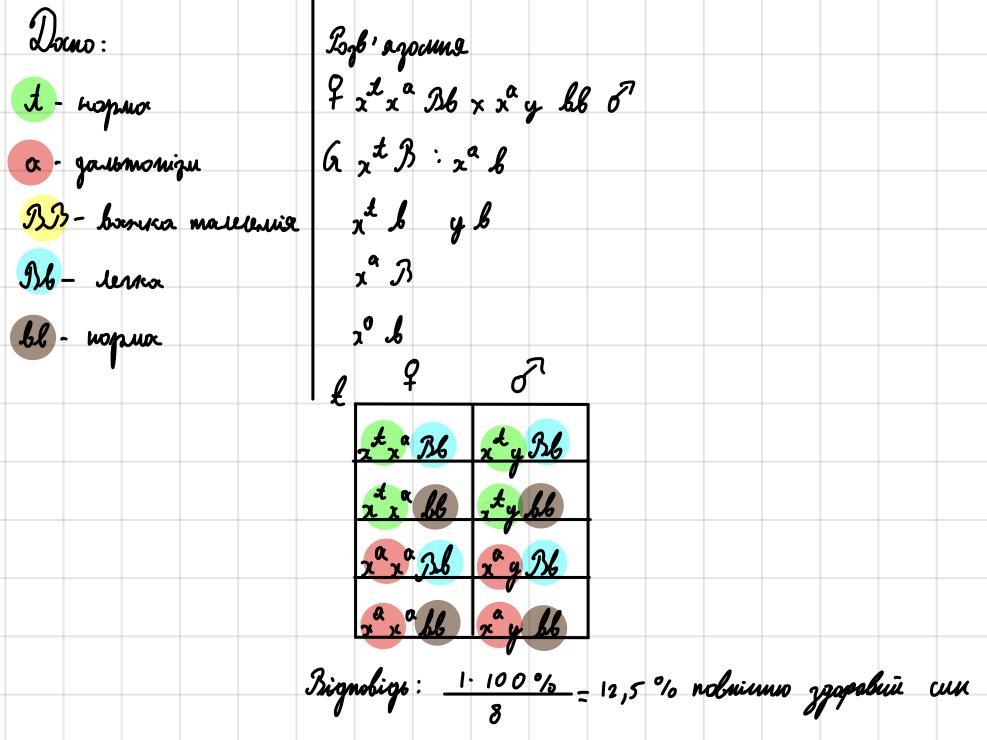 Дано:
t - норма
a - дальтонізм
BB - важка таласемія
Bb - легка
bb - норма
Розв'язання
♀ xᵗxᵃ Bb x xᵃy bb ♂
G xᵗ B : xᵃ b
xᵗ b y b
xᵃ B
xᵃ b
♀ ♂
t
xᵗxᵃ Bb xᵗy Bb
xᵗxᵃ bb xᵗy bb
xᵃxᵃ Bb xᵃy Bb
xᵃxᵃ bb xᵃy bb
Відповідь: 1·100% / 8 = 12,5% повністю здоровий син